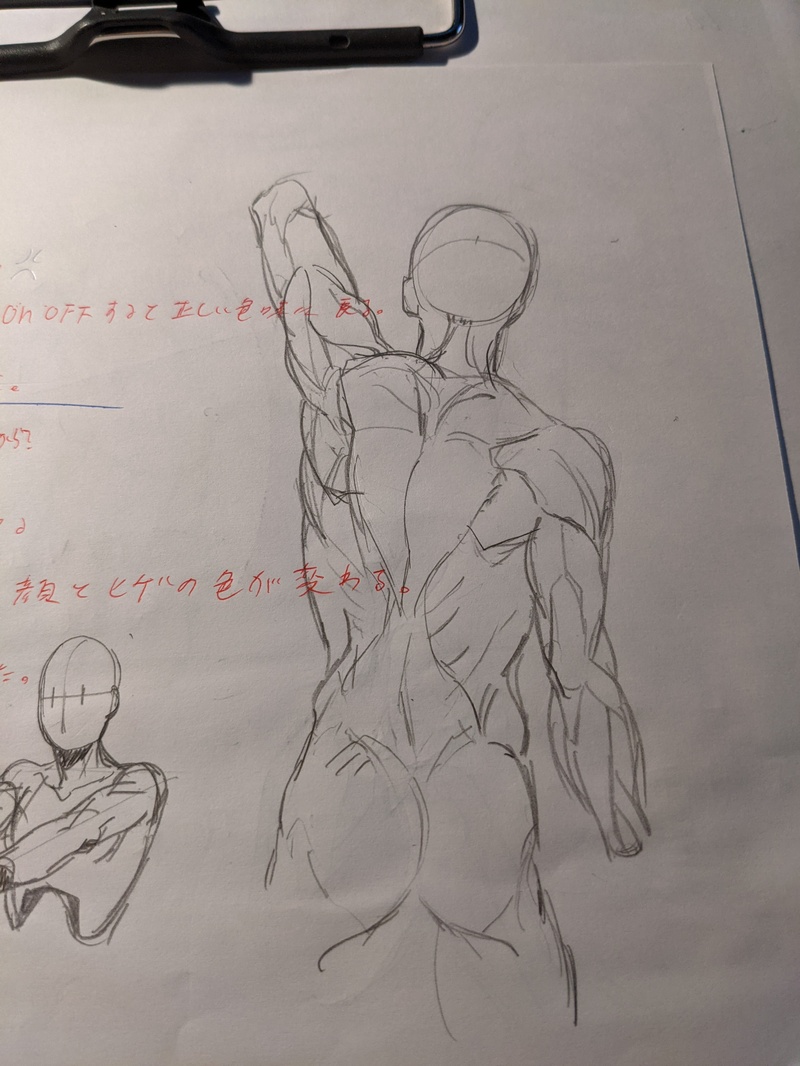 On OFFすると正しい色味に戻る。
。
から?
る
顔とヒゲの色が変わる。
た。